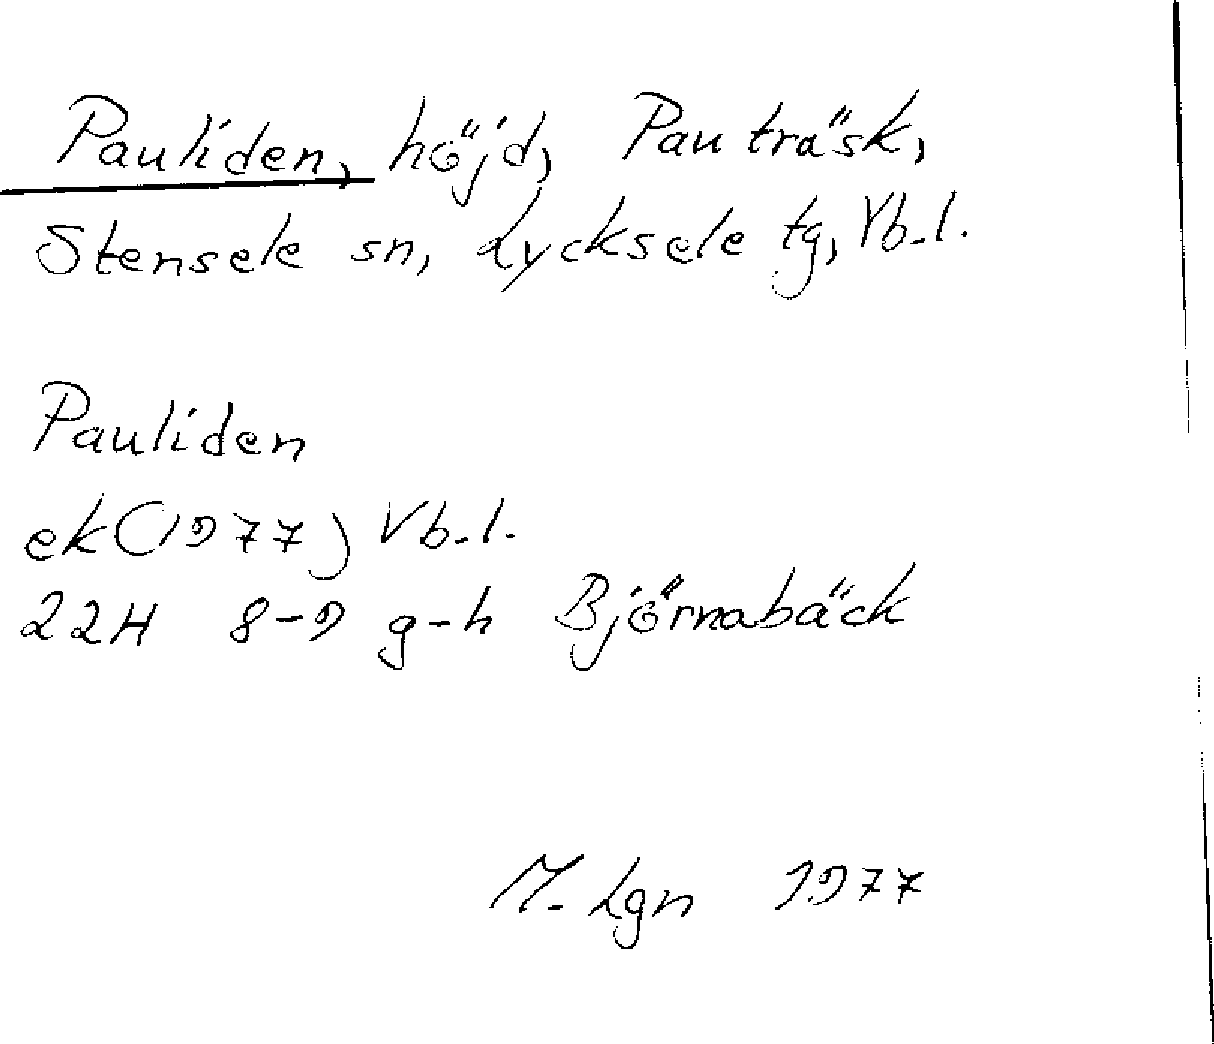 Pauliden, höjd, Pauträsk,
Stensele sn, Lycksele tg, Vb.l.
Pauliden
ek (1977) Vb.l.
22H 8-9 g-h Björnabäck
M. Lgn 1977